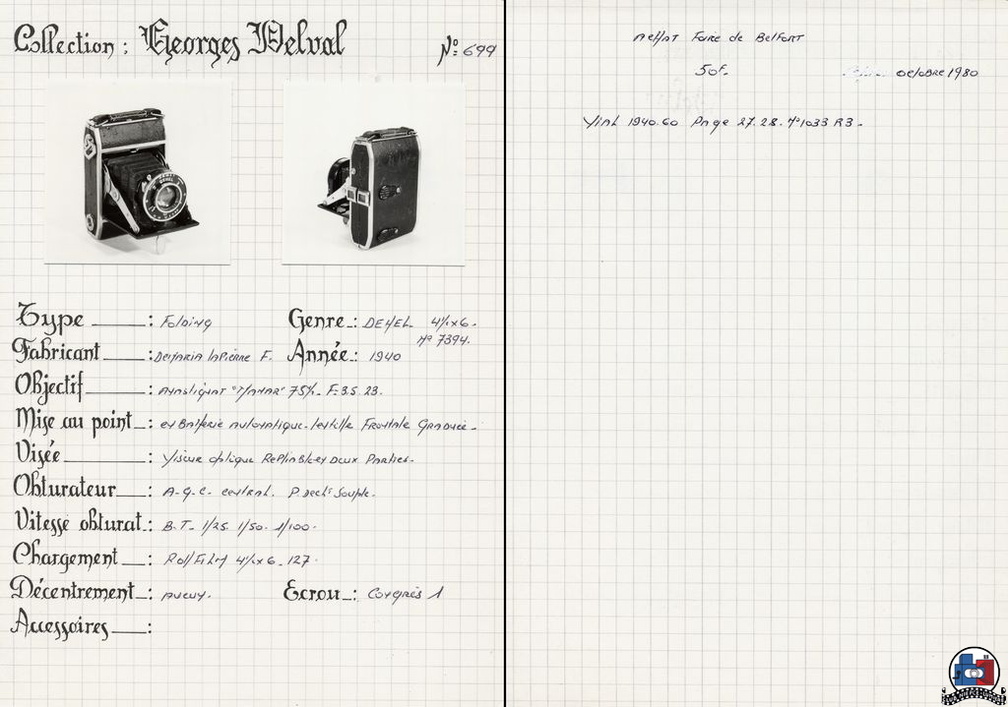 Collection : Georges Delval Nº 699
Type : Folding Genre : DEHEL 4½x6.
Nº 7394.
Fabricant : Demaria Lapierre F. Année : 1940
Objectif : Anastigmat "Manar" 75%. F=3.5 23.
Mise au point : en Batterie automatique. lentille Frontale Graduée.
Visée : Viseur optique Repliable en Deux Parties.
Obturateur : A.G.C. central. P. Dect Souple.
Vitesse obturat : B.T. 1/25. 1/50. 1/100.
Chargement : RollFilm 4½x6. 127.
Décentrement : aucun. Ecrou : Congrès 1
Accessoires :
Achat Foire de Belfort
50F. octobre 1980
Vial 1940.60 Page 27.28. Nº1033 R3.